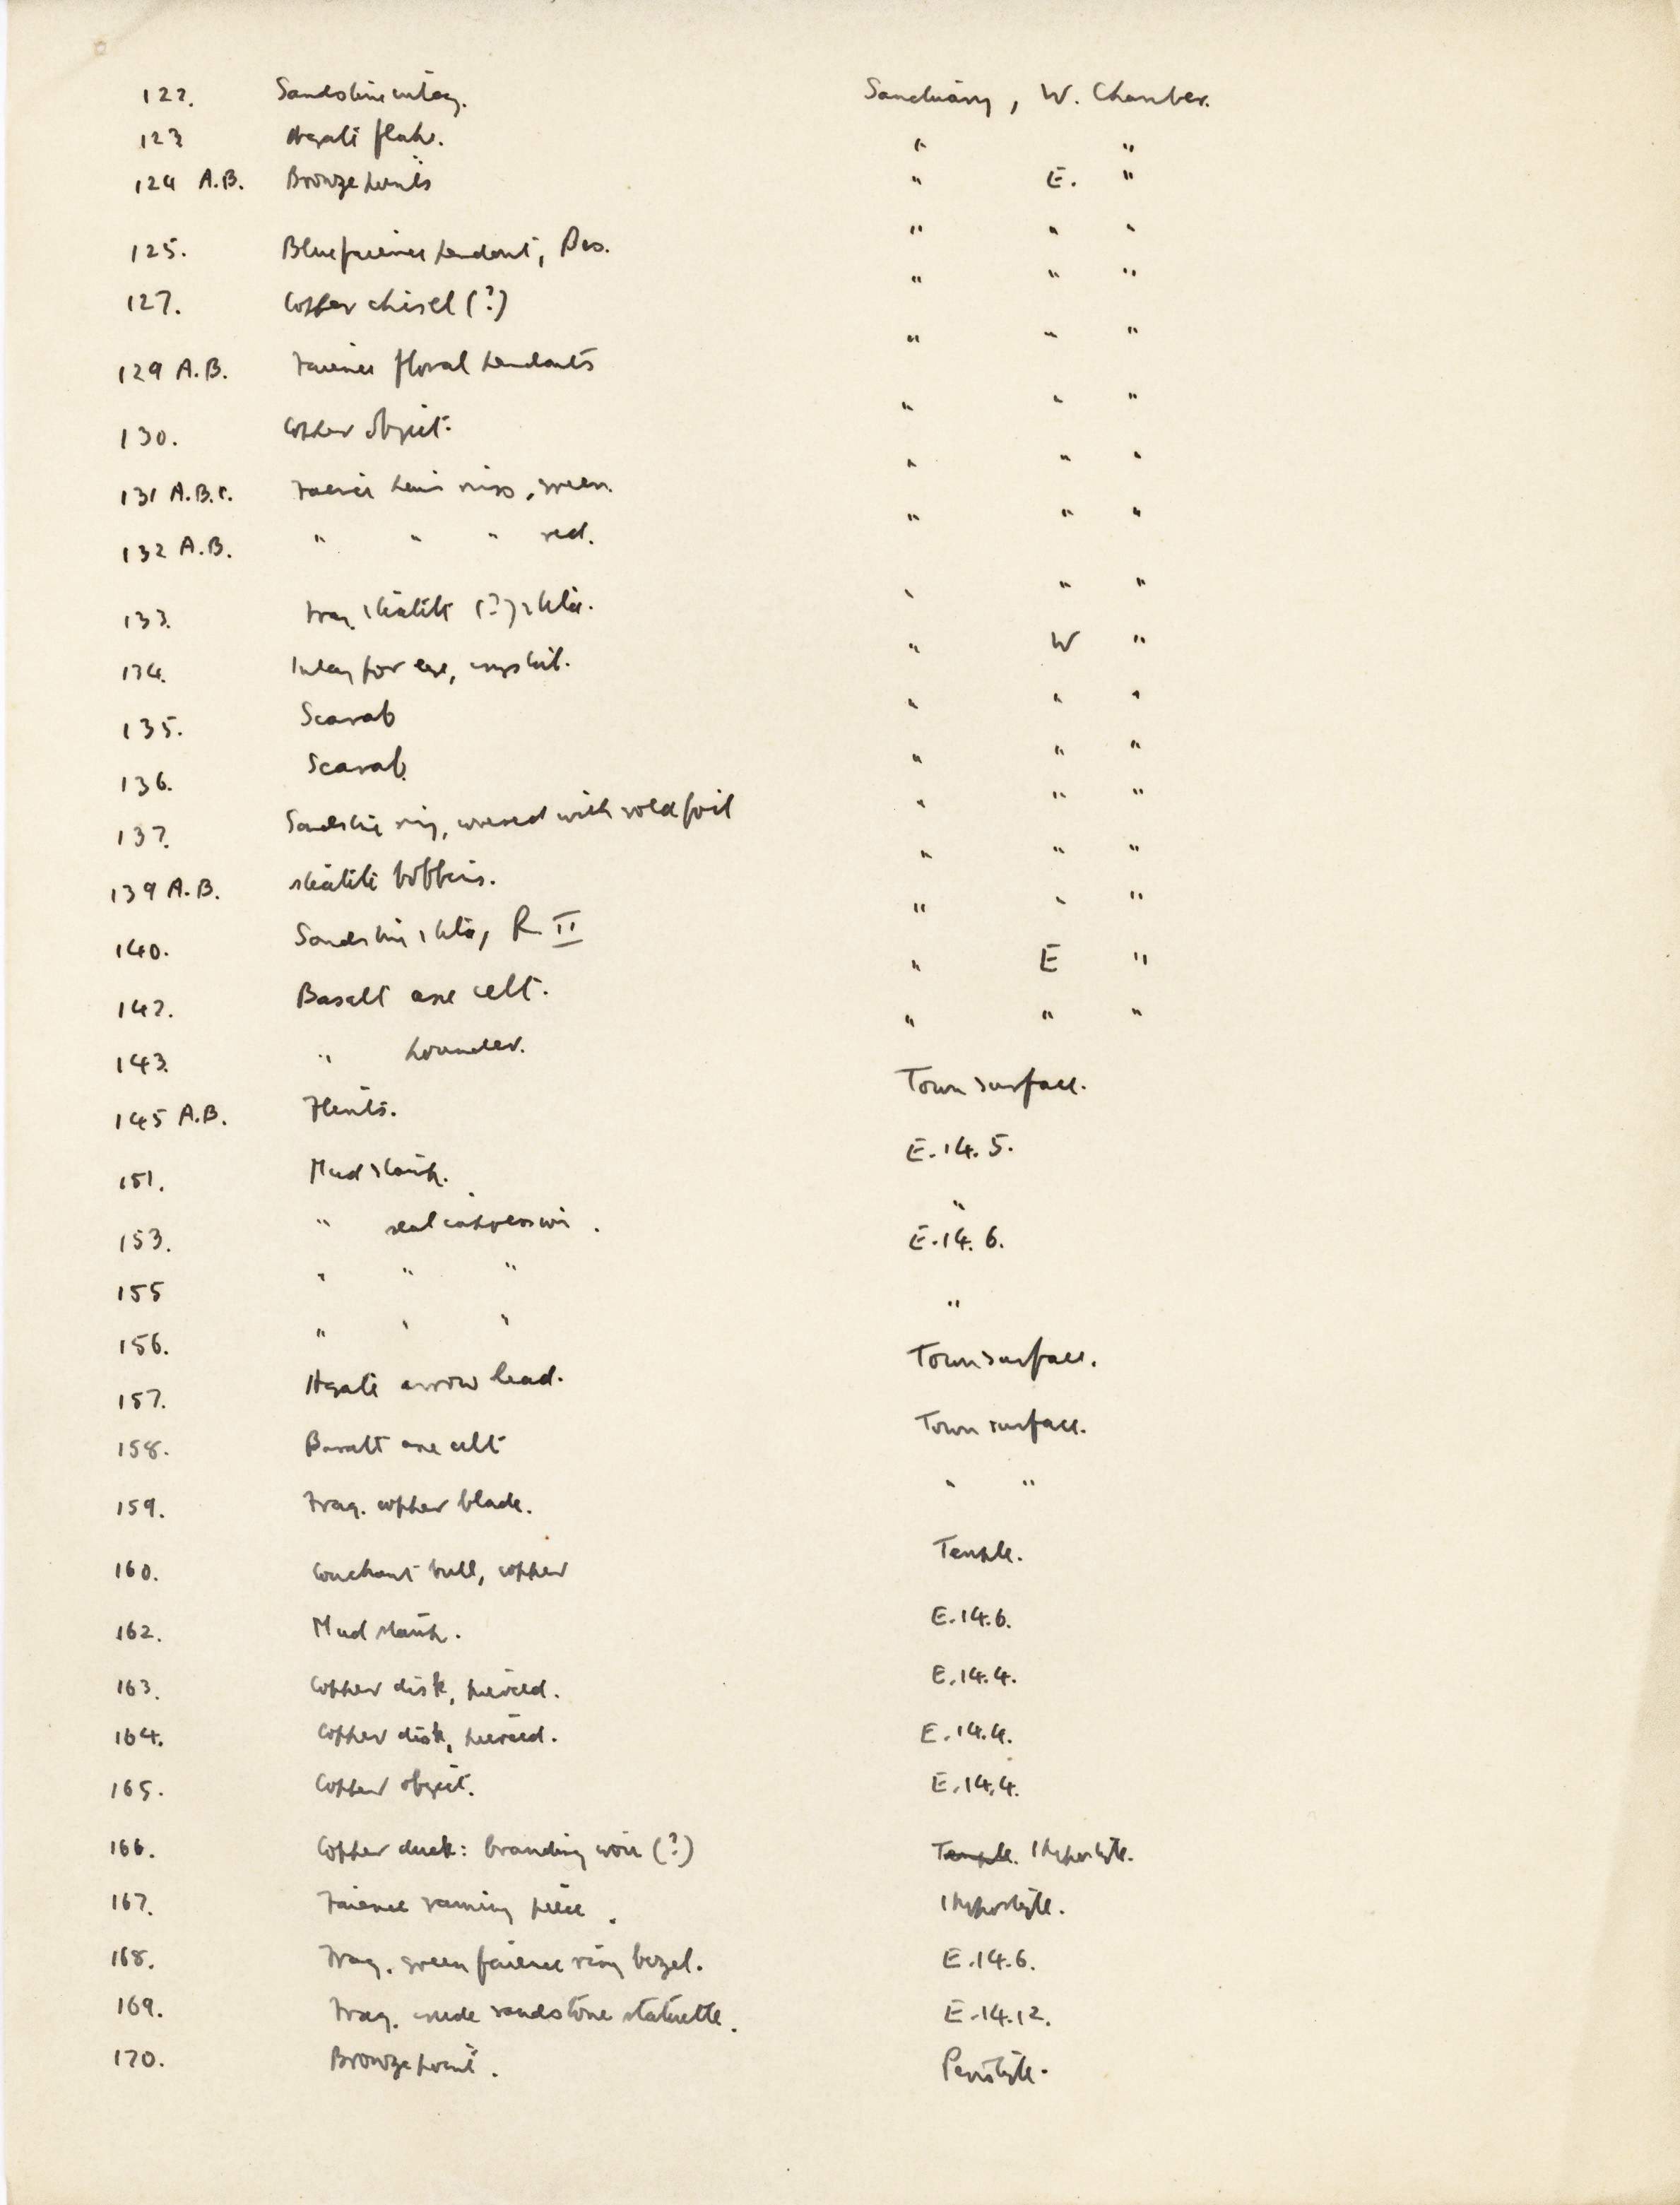 122. Sandstone inlay. Sanctuary, W. Chamber.
123 Agate flake. " "
124 A.B. Bronze points " E. "
125. Blue faience pendant, Bes. " " "
127. Copper chisel (?) " " "
129 A.B. Faience floral pendants " " "
130. Copper object. " " "
131 A.B.C. Faience hair rings, green. " " "
132 A.B. " " " red. " " "
133. Frag. steatite (?) stela. " " "
134. Inlay for eye, crystal. " W "
135. Scarab " " "
136. Scarab. " " "
137. Sandstone ring, covered with gold foil " " "
139 A.B. Steatite bobbins. " " "
140. Sandstone stela, R II " " "
142. Basalt axe celt. " E "
143. " pounder. " " "
145 A.B. Flints. Town surface.
151. Mud stamp. E.14.5.
153. " seal impression. "
155 " " " E.14.6.
156. " " " "
157. Agate arrow head. Town surface.
158. Basalt axe celt Town surface.
159. Frag. copper blade. " "
160. Couchant bull, copper Temple.
162. Mud stamp. E.14.6.
163. Copper disk, pierced. E.14.4.
164. Copper disk, pierced. E.14.4.
165. Copper object. E.14.4.
166. Copper duck: branding iron (?) Temple. Hypostyle.
167. Faience gaming piece. Hypostyle.
168. Frag. green faience ring bezel. E.14.6.
169. Frag. crude sandstone statuette. E.14.12.
170. Bronze point. Peristyle.